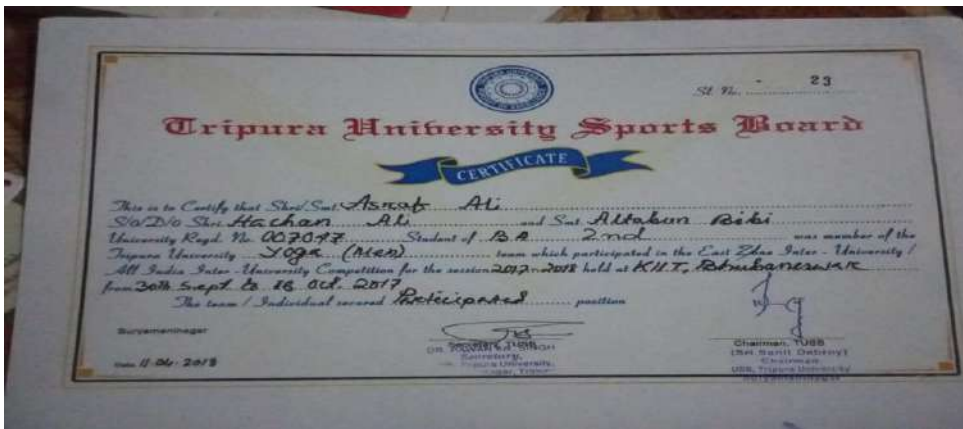 Sl. No. - 23
Tripura University Sports Board
CERTIFICATE
This is to Certify that Shri/Smt Asraf Ali
S/o/D/o Shri Hachan Ali and Smt Altabun Bibi
University Regd. No. 007047 Student of B.A 2nd was member of the
Tripura University Yoga (Men) team which participated in the East Zone Inter - University /
All India Inter - University Competition for the session 2017-2018 held at KIIT, Bhubaneswar
from 30th Sept to 16 Oct. 2017
The team / Individual secured Participated position
Suryamaninagar
Secretary, TUSB
Secretary,
Tripura University,
Chairman, TUSB
Chairman,
USB, Tripura University
Suryamaninagar
Date 11-04-2018